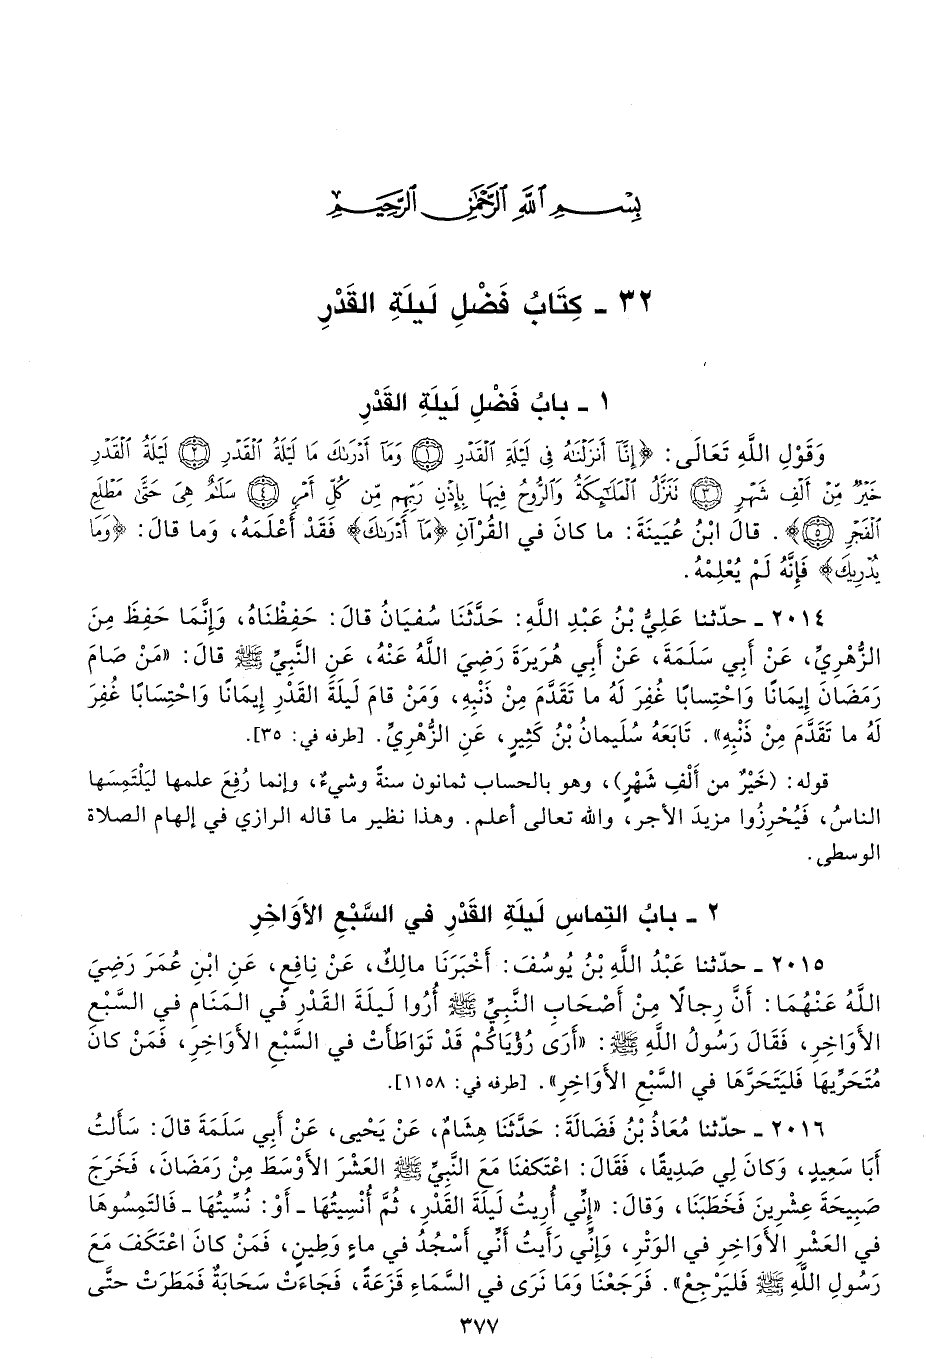 بِسْمِ ٱللَّهِ ٱلرَّحْمَٰنِ ٱلرَّحِيمِ
٣٢ - كِتَابُ فَضْلِ لَيلَةِ القَدْرِ
١ - بابُ فَضْلِ لَيلَةِ القَدْرِ
وَقَوْلِ اللَّهِ تَعَالَى: ﴿إِنَّآ أَنزَلْنَٰهُ فِى لَيْلَةِ ٱلْقَدْرِ ۝١ وَمَآ أَدْرَىٰكَ مَا لَيْلَةُ ٱلْقَدْرِ ۝٢ لَيْلَةُ ٱلْقَدْرِ
خَيْرٌ مِّنْ أَلْفِ شَهْرٍ ۝٣ تَنَزَّلُ ٱلْمَلَٰٓئِكَةُ وَٱلرُّوحُ فِيهَا بِإِذْنِ رَبِّهِم مِّن كُلِّ أَمْرٍ ۝٤ سَلَٰمٌ هِىَ حَتَّىٰ مَطْلَعِ
ٱلْفَجْرِ ۝٥﴾. قالَ ابْنُ عُيَينَةَ: ما كانَ في القُرْآنِ ﴿مَآ أَدْرَىٰكَ﴾ فَقَدْ أَعْلَمَهُ، وَما قالَ: ﴿وَمَا
يُدْرِيكَ﴾ فَإِنَّهُ لَمْ يُعْلِمْهُ.
٢٠١٤ - حدّثنا عَلِيُّ بْنُ عَبْدِ اللَّهِ: حَدَّثَنَا سُفيَانُ قالَ: حَفِظْنَاهُ، وَإِنَّمَا حَفِظَ مِنَ
الزُّهْرِيِّ، عَنْ أَبِي سَلَمَةَ، عَنْ أَبِي هُرَيرَةَ رَضِيَ اللَّهُ عَنْهُ، عَنِ النَّبِيِّ ﷺ قالَ: «مَنْ صَامَ
رَمَضَانَ إِيمَانًا وَاحْتِسابًا غُفِرَ لَهُ ما تَقَدَّمَ مِنْ ذَنْبِهِ، وَمَنْ قامَ لَيلَةَ القَدْرِ إِيمَانًا وَاحْتِسَابًا غُفِرَ
لَهُ ما تَقَدَّمَ مِنْ ذَنْبِهِ». تَابَعَهُ سُلَيمانُ بْنُ كَثِيرٍ، عَنِ الزُّهْرِيِّ. [طرفه في: ٣٥].
قوله: (خَيْرٌ من أَلْفِ شَهْرٍ)، وهو بالحساب ثمانون سنةً وشيءٌ، وإنما رُفِعَ علمها ليَلْتَمِسَها
الناسُ، فَيُحْرِزُوا مزيدَ الأجر، والله تعالى أعلم. وهذا نظير ما قاله الرازي في إلهام الصلاة
الوسطى.
٢ - بابُ التِماسِ لَيلَةِ القَدْرِ في السَّبْعِ الأَوَاخِرِ
٢٠١٥ - حدّثنا عَبْدُ اللَّهِ بْنُ يُوسُفَ: أَخْبَرَنَا مالِكٌ، عَنْ نَافِعٍ، عَنِ ابْنِ عُمَرَ رَضِيَ
اللَّهُ عَنْهُمَا: أَنَّ رِجالًا مِنْ أَصْحَابِ النَّبِيِّ ﷺ أُرُوا لَيلَةَ القَدْرِ في المَنَامِ في السَّبْعِ
الأَوَاخِرِ، فَقَالَ رَسُولُ اللَّهِ ﷺ: «أَرَى رُؤْيَاكُمْ قَدْ تَوَاطَأَتْ في السَّبْعِ الأَوَاخِرِ، فَمَنْ كانَ
مُتَحَرِّيهَا فَليَتَحَرَّهَا في السَّبْعِ الأَوَاخِرِ». [طرفه في: ١١٥٨].
٢٠١٦ - حدّثنا مُعَاذُ بْنُ فَضَالَةَ: حَدَّثَنَا هِشَامٌ، عَنْ يَحْيى، عَنْ أَبِي سَلَمَةَ قالَ: سَأَلتُ
أَبَا سَعِيدٍ، وَكانَ لِي صَدِيقًا، فَقَالَ: اعْتَكَفنَا مَعَ النَّبِيِّ ﷺ العَشْرَ الأَوْسَطَ مِنْ رَمَضَانَ، فَخَرَجَ
صَبِيحَةَ عِشْرِينَ فَخَطَبَنَا، وَقالَ: «إِنِّي أُرِيتُ لَيلَةَ القَدْرِ، ثُمَّ أُنْسِيتُهَا ـ أَوْ: نُسِّيتُهَا ـ فَالتَمِسُوهَا
في العَشْرِ الأَوَاخِرِ في الوَتْرِ، وَإِنِّي رَأَيتُ أَنِّي أَسْجُدُ في ماءٍ وَطِينٍ، فَمَنْ كانَ اعْتَكَفَ مَعَ
رَسُولِ اللَّهِ ﷺ فَليَرْجِعْ». فَرَجَعْنَا وَمَا نَرَى في السَّمَاءِ قَزَعَةً، فَجَاءَتْ سَحَابَةٌ فَمَطَرَتْ حتَّى
٣٧٧